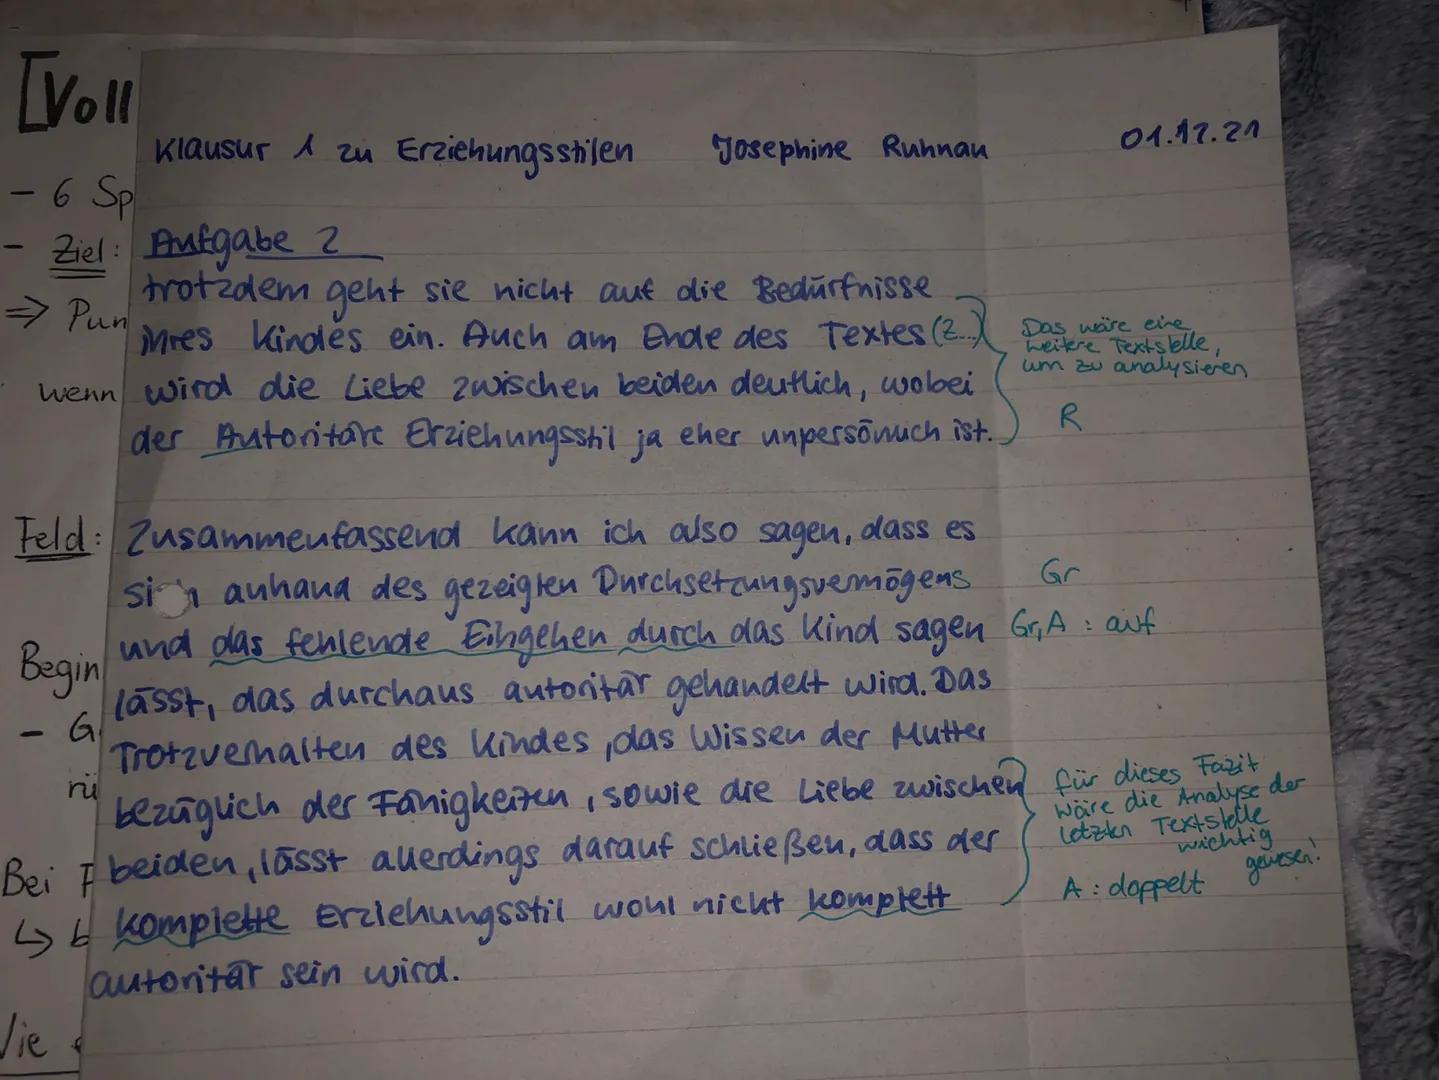 [Voll
- 6 Sp
- Ziel:
⇒ Pun
wenn
Feld:
Begin
- G
rü
Bei F
↳ b
Vie
Klausur 1 zu Erziehungsstilen Josephine Ruhnau 01.12.21
Aufgabe 2
trotzdem geht sie nicht auf die Bedürfnisse
ihres Kindes ein. Auch am Ende des Textes (Z...)
wird die Liebe zwischen beiden deutlich, wobei
der Autoritäre Erziehungsstil ja eher unpersönlich ist.
Das wäre eine
weitere Textstelle,
um zu analysieren
R
Zusammenfassend kann ich also sagen, dass es
sich anhand des gezeigten Durchsetzungsvermögens
und das fehlende Eingehen durch das Kind sagen
lässt, das durchaus autoritär gehandelt wird. Das
Trotzverhalten des Kindes, das Wissen der Mutter
bezüglich der Fähigkeiten, sowie die Liebe zwischen
beiden, lässt allerdings darauf schließen, dass der
komplette Erziehungsstil wohl nicht komplett
autoritär sein wird.
Gr
Gr, A: auf
für dieses Fazit
wäre die Analyse der
letzten Textstelle
wichtig
gewesen!
A: doppelt